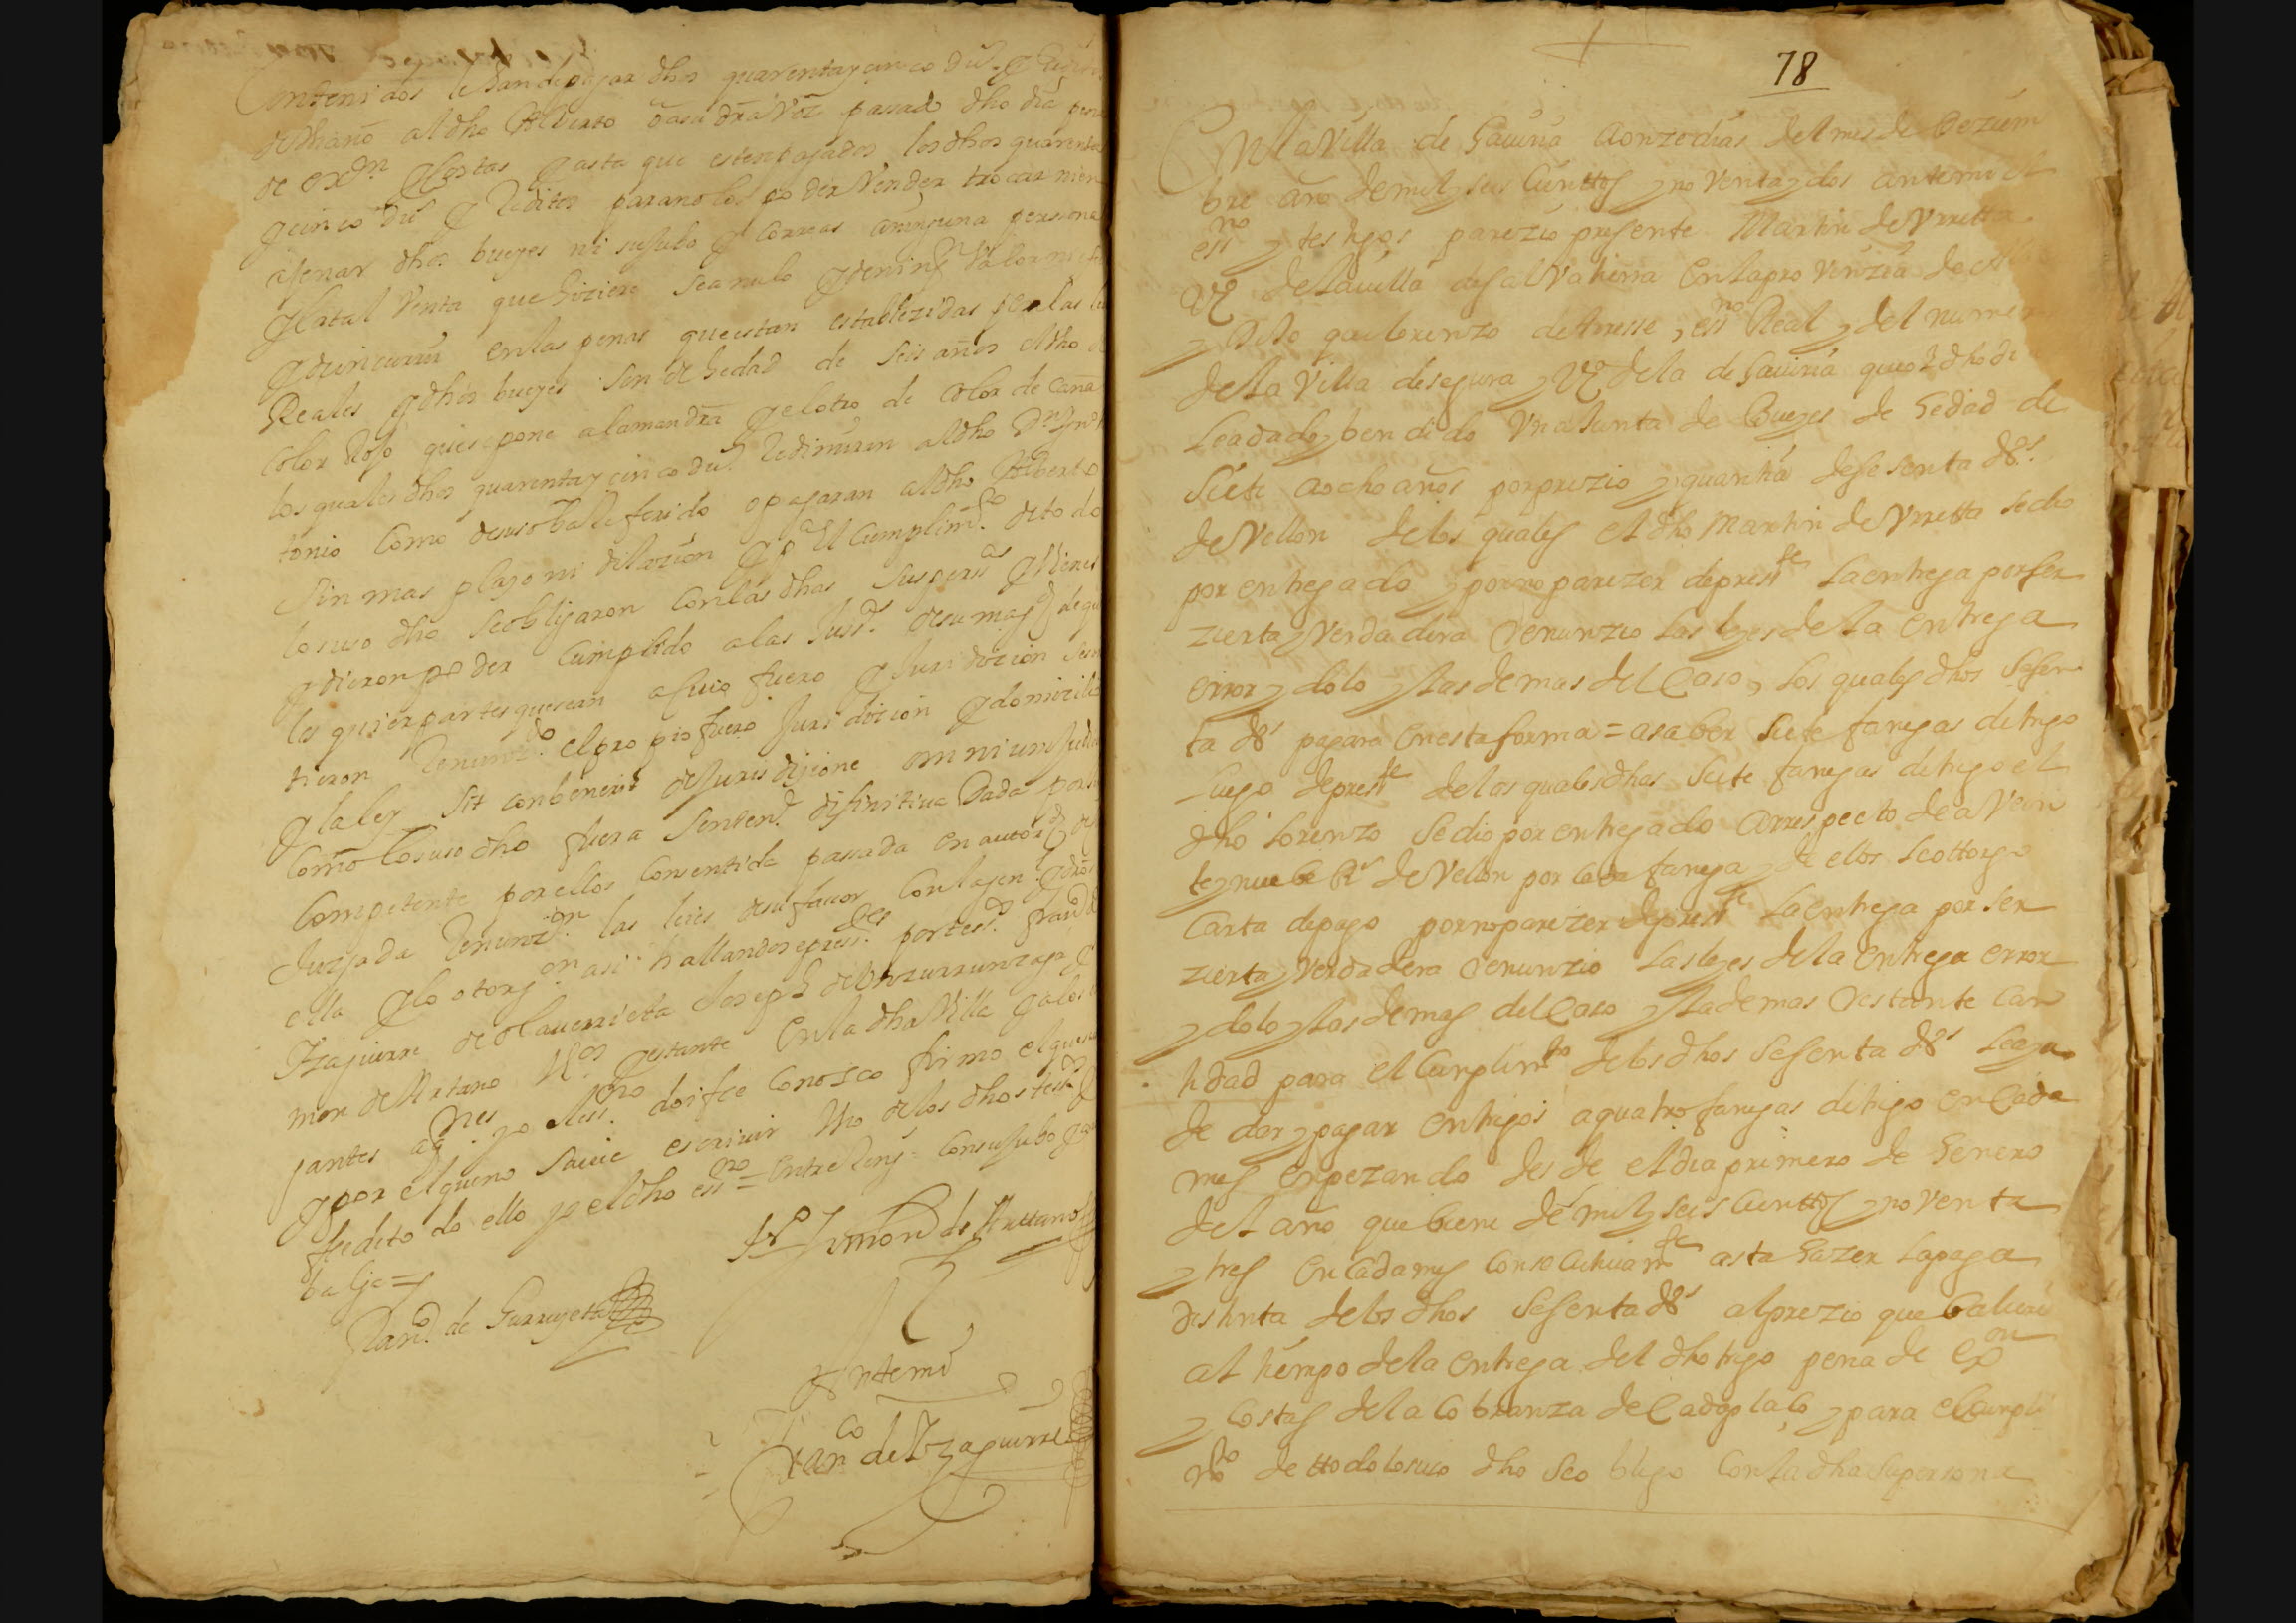 Contenidos le han de pagar dhos quarenta y cinco dus. y
dho año al dho Alberto o a su dra voz passado dho dia pena
de exon y costas y asta que esten pagados los dhos quarenta
y cinco dus y reditos para no los poder vender trocar ni en
ajenar dhos bueyes ni su jubo y correas a ninguna persona
y la tal venta que hiziere sea nula y de ning valor ni
y de incurrir en las penas que estan establezidas por las
Reales y dhos bueyes son de hedad de seis años el dho
color Rojo que se pone a la man dra y el otro de color de caña
los quales dhos quarenta y cinco dus redimiran al dho Dn
tonio como de suso ba Referido o pagaran al dho Alberto
sin mas plazo ni dilazion y pa el cumplimto de todo
lo suso dho se obligaron con las dhas sus persas y vienes
y dieron poder cumplido a las Jusas de su magd de qua
les quier partes que sean a cuio fuero y Juridizion
tieron Renunzdo el propio fuero Juridizion y domizilio
y la ley sit conbenerit de Jurisdizione omnium Judi
como lo suso dho fuera sentena difinitiua Dada por
competente por ellos consentida passada en autord de
Juzgada Renunzon las leies de su fauor con la gen y dros
ella y lo otorgon asi hallandose pressentes por tess. Frando
Yzaguirre de Olauerrieta Joseph de
mon de Aratano Vos y estante en la dha Villa y a los
gantes a qnes yo el essno doi fee conosco firmo el que
y por el que no sauie escriuir vno de los dhos tests
fee de todo ello yo el dho essno = entre Rengs = con su jubo
balga =
Simon de Aratano
Frando de Gurruzeta
Antemi
Franco de Yzaguirre
78
En la Villa de Gauiria a onze dias del mes de Dezium
bre año de mil y seis cienttos y no venta y dos antemi el
essno y testigos parezio presente Martin de Vrretta
Vo de la uilla de saluatierra en la pro vinzia de
y Dijo que lorenzo de Arresse, essno Real y del numero
de la Villa de segura y Vo de la de Gauiria que el dho di
le a dado y bendido vna Junta de Bueyes de hedad de
Siete a ocho años por prezio y quantia de sesenta d8s
de Vellon de los quales el dho Martin de Vrretta se dio
por entregado y por no parezer de preste la entrega por ser
zierta y verdadera Renunzio las leyes de la entrega
error y dolo y las demas del Caso, los quales dhos Sesen
ta d8s pagara en esta forma = a saber siete fanegas de trigo
Luego de preste de los quales dhas Siete fanegas de trigo el
dho Lorenzo se dio por entregado a rrespecto de a vein
te y nuebe Rs de Vellon por cada fanega y de ellos le ottorgo
Carta de pago por no parezer de preste la entrega por ser
zierta y verdadera Renunzio las leyes de la entrega error
y dolo y las demas del Caso y la demas restante can
tidad para el Cunplimto de los dhos Sesenta d8s le a
de dar y pagar en trigos a quatro fanegas de trigo en Cada
mes enpezando des de el dia primero de Henero
del año que biene de mil y seis cienttos y no venta
y tres en cada mes consecutiuamte asta hazer la paga
distinta de los dhos Sesenta d8s al prezio que baliere
al tiempo de la entrega del dho trigo pena de exon
y costas de la cobranza de Cada plaço y para el Cunpli
mto de ttodo lo suso dho se obligo con la dha su persona